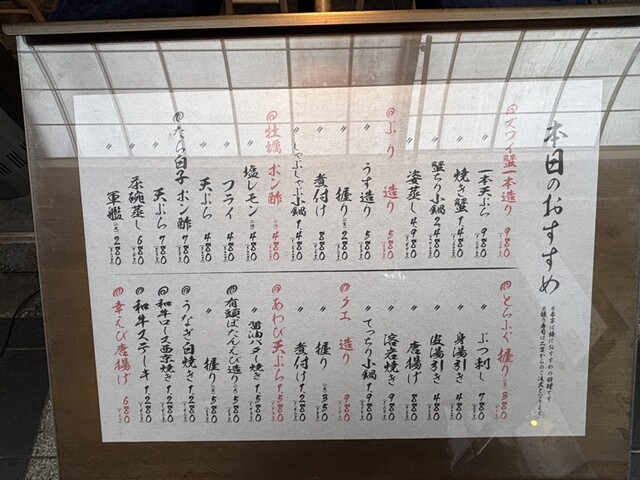 本日のおすすめ
※赤字は特におすすめの料理です
※握り寿司は二貫からのご注文となります
◎ズワイ蟹一本造り 980
〃 一本天ぷら 980
〃 焼き蟹 1,480
〃 蟹ちり小鍋 2,480
〃 姿蒸し 4,980
◎ぶり 造り 580
〃 うす造り 580
〃 握り 280
〃 煮付け 880
〃 しゃぶしゃぶ小鍋 1,480
◎牡蠣 ポン酢 480
〃 塩レモン 480
〃 フライ 480
〃 天ぷら 480
◎たら白子 ポン酢 780
〃 天ぷら 780
〃 茶碗蒸し 680
〃 軍艦 280
◎とらふぐ 握り 380
〃 ぶつ刺し 780
〃 身湯引き 480
〃 皮湯引き 480
〃 唐揚げ 880
〃 溶岩焼き 980
〃 てっちり小鍋 1,980
◎クエ 造り 980
〃 握り 350
〃 煮付け 1,280
◎あわび天ぷら 1,580
〃 醤油バター焼き 1,580
◎有頭ぼたんえび造り 580
〃 握り 580
◎うなぎ白焼き 1,280
◎和牛ロース西京焼き 1,280
◎和牛ステーキ 1,280
◎幸えび唐揚げ 680